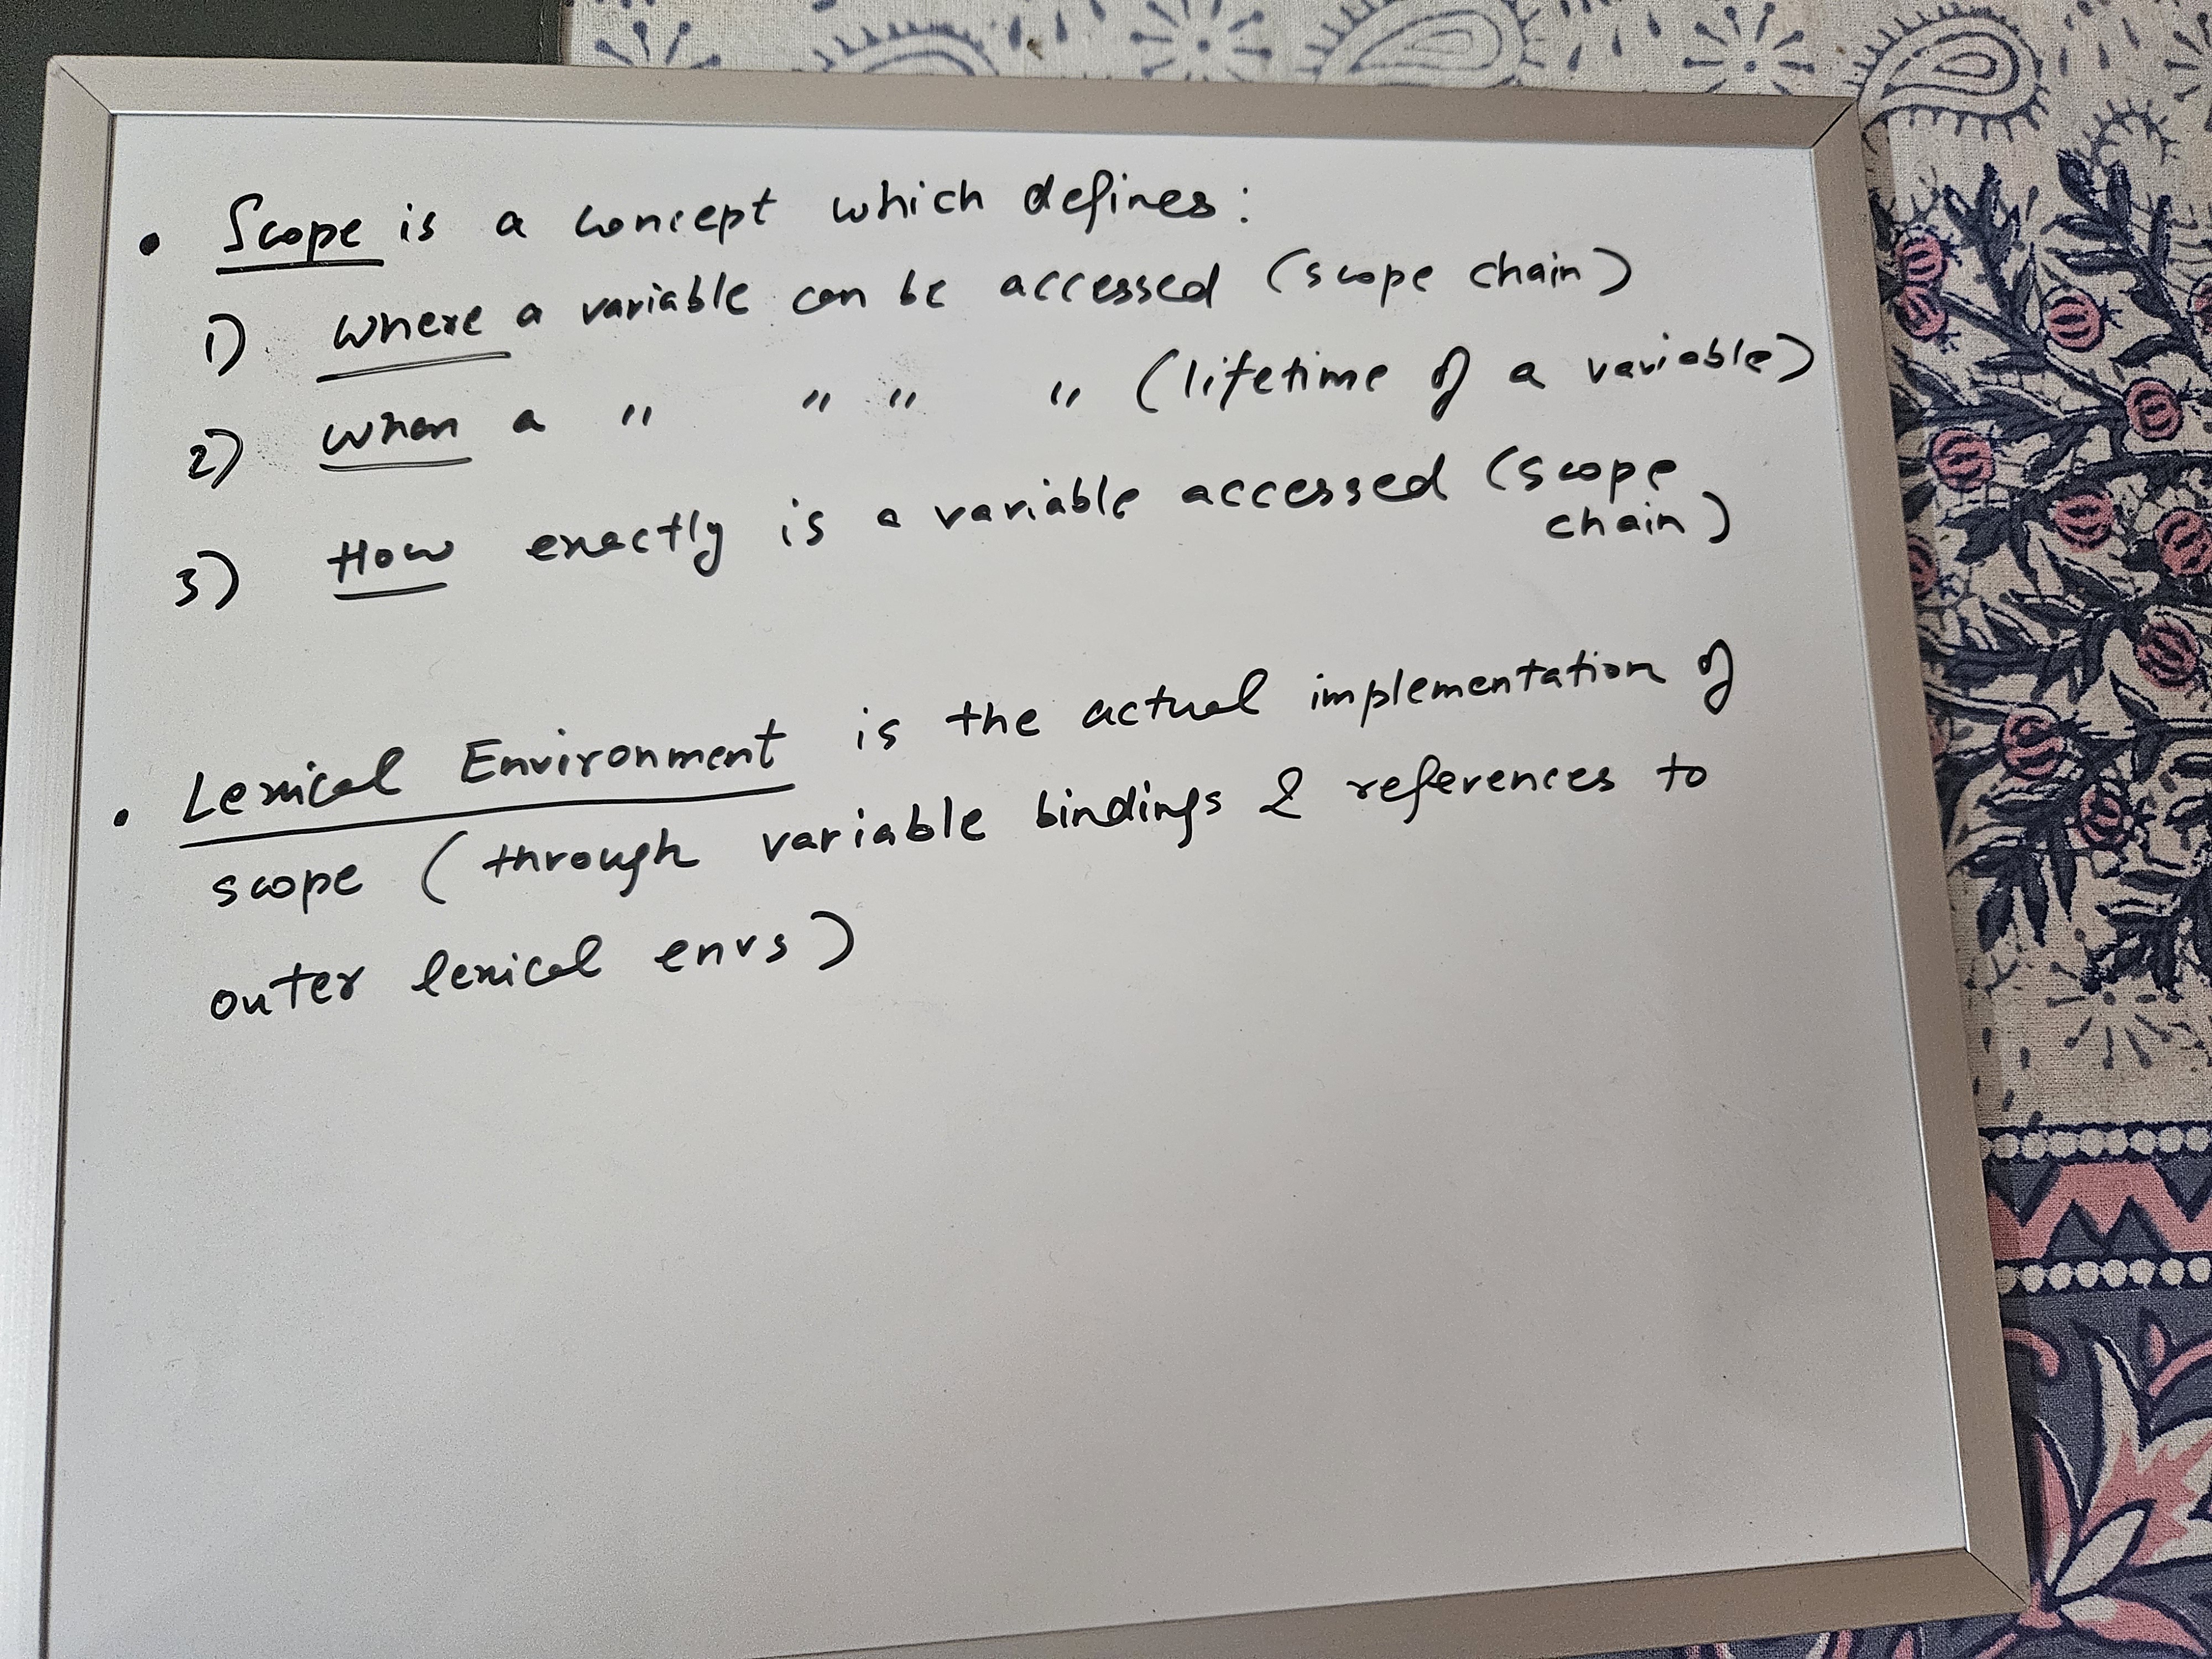 • Scope is a concept which defines:
1) Where a variable can be accessed (scope chain)
2) When a " " " " (lifetime of a variable)
3) How exactly is a variable accessed (scope
chain)
• Lexical Environment is the actual implementation of
scope (through variable bindings & references to
outer lexical envs)